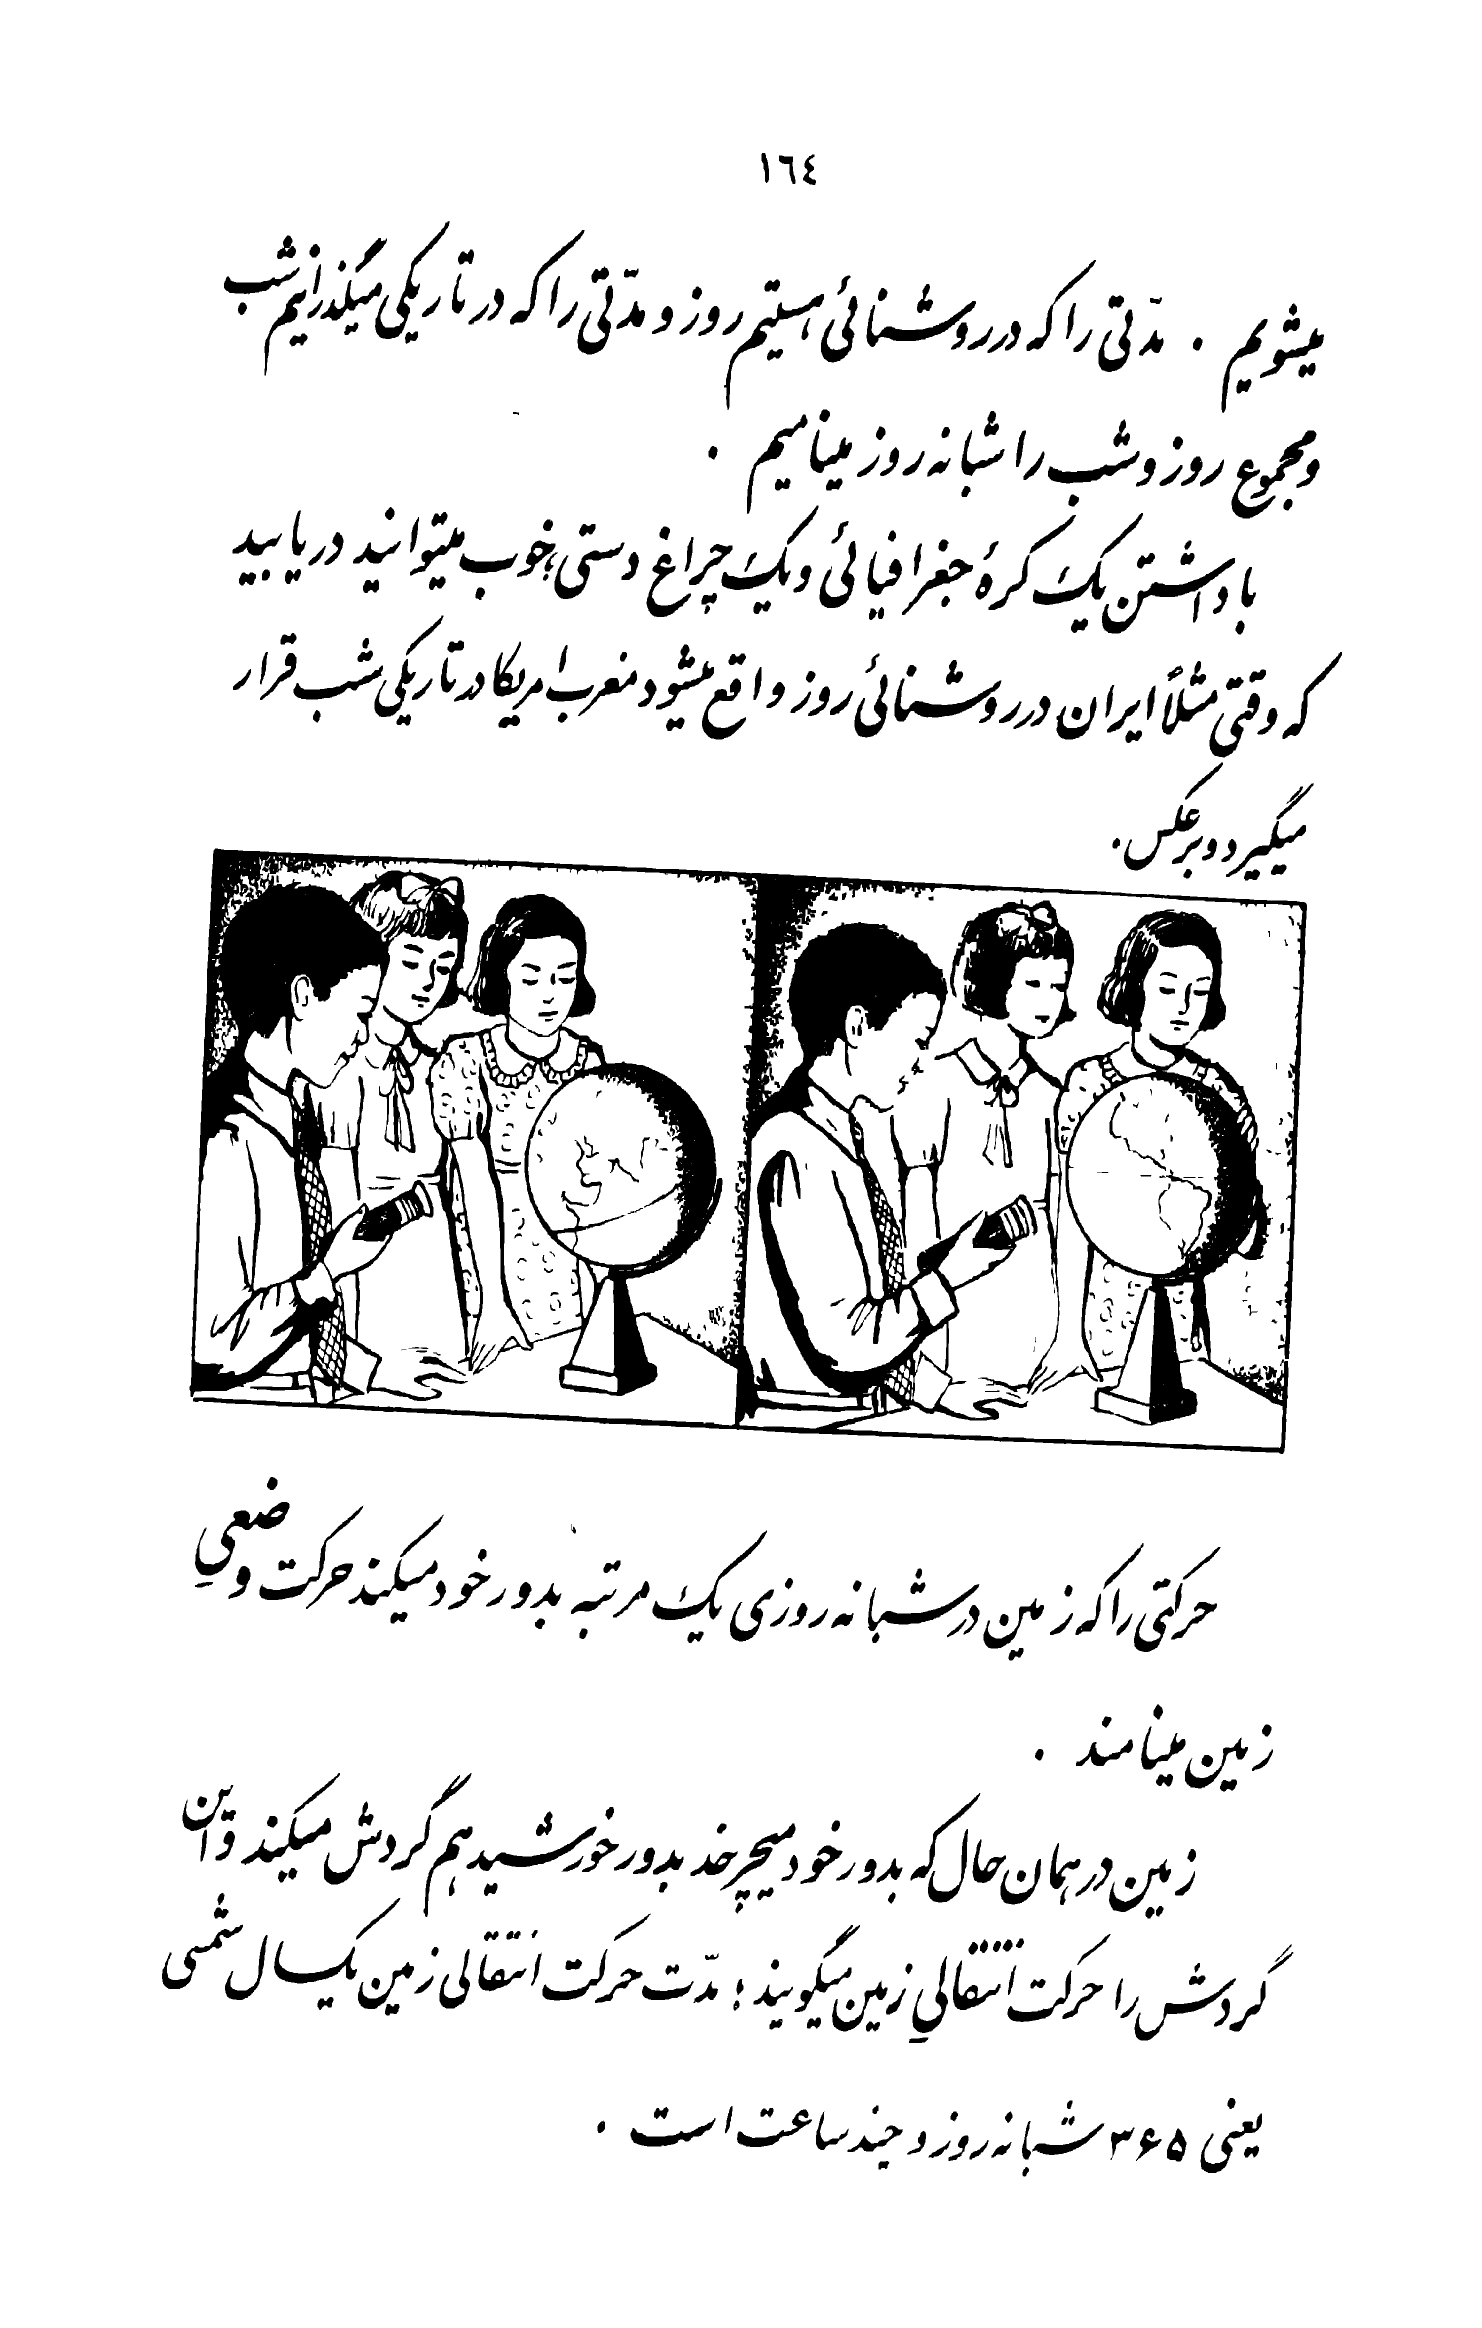 ١٦٤
میشویم . مدّتی را که در روشنائی هستیم روز و مدّتی را که در تاریکی میگذرانیم شب
و مجموع روز و شب را شبانه روز مینامیم .
با داشتن یک کرهٔ جغرافیائی و یک چراغ دستی، خوب میتوانید دریابید
که وقتی مثلاً ایران در روشنائی روز واقع میشود مغرب امریکا در تاریکی شب قرار
میگیرد و برعکس .
حرکتی را که زمین در شبانه روزی یک مرتبه بدور خود میکند حرکت وضعیِ
زمین مینامند .
زمین در همان حال که بدور خود میچرخد بدور خورشید هم گردش میکند و این
گردش را حرکت انتقالیِ زمین میگویند ؛ مدّت حرکت انتقالی زمین یکسال شمسی
یعنی ۳۶۵ شبانه روز و چند ساعت است .